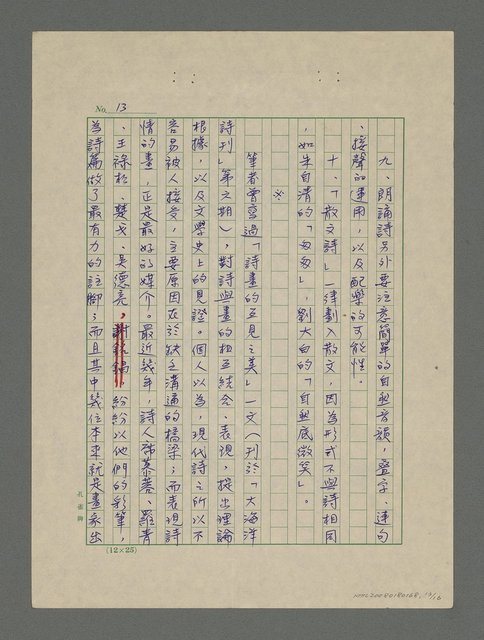 No. 13
九、朗誦詩另外要注意簡單的自然音韻，疊字、連句
、接聲的運用，以及配樂的可能性。
十、「散文詩」一律劃入散文，因為形式不與詩相同
，如朱自清的「匆匆」，劉大白的「自然底微笑」。
※
筆者曾寫過「詩畫的互見之美」一文（刊於「大海洋
詩刊」第之期），對詩與畫的相互結合、表現，提出理論
根據，以及文學史上的見證。個人以為，現代詩之所以不
容易被人接受，主要原因在於缺乏溝通的橋梁；而表現詩
情的畫，正是最好的媒介。最近幾年，詩人張慕蓉、羅青
、王祿松、楚戈、吳德亮，紛紛以他們的彩筆，
為詩篇做了最有力的註腳；而且其中幾位本來就是畫家出
(12×25)
孔雀牌